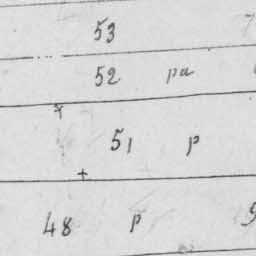 53
52 pa
51 p
48 p